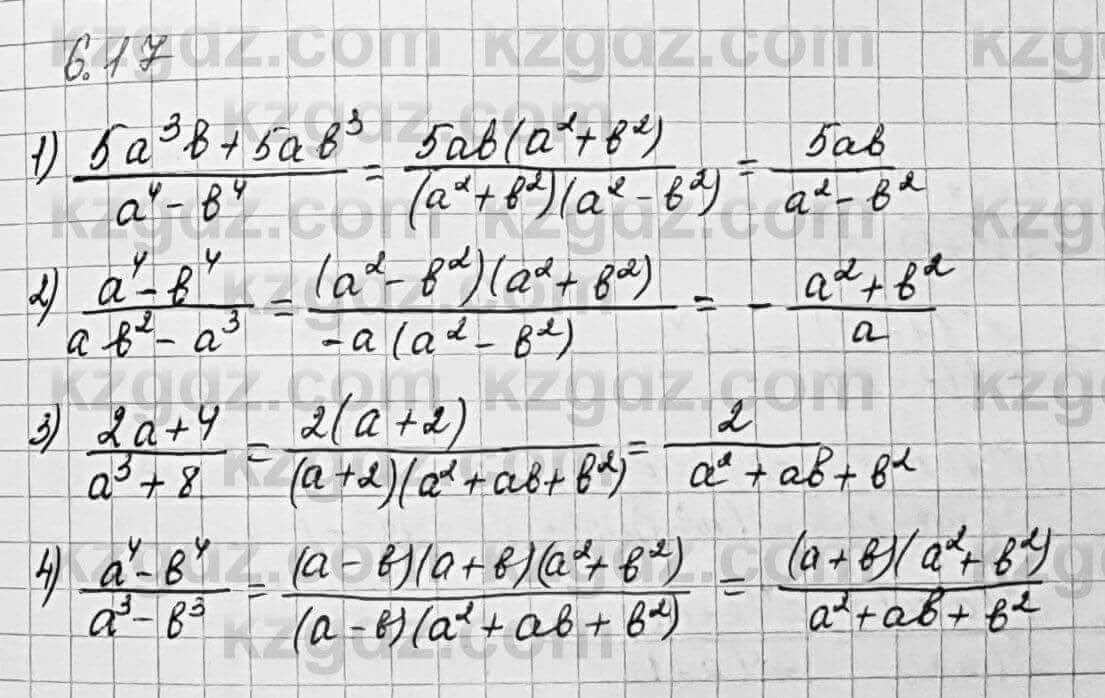 6.17
1) (5a³b + 5ab³)/(a⁴ - b⁴) = (5ab(a² + b²))/((a² + b²)(a² - b²)) = (5ab)/(a² - b²)
2) (a⁴ - b⁴)/(ab² - a³) = ((a² - b²)(a² + b²))/(-a(a² - b²)) = - (a² + b²)/a
3) (2a + 4)/(a³ + 8) = (2(a + 2))/((a + 2)(a² + ab + b²)) = 2/(a² + ab + b²)
4) (a⁴ - b⁴)/(a³ - b³) = ((a - b)(a + b)(a² + b²))/((a - b)(a² + ab + b²)) = ((a + b)(a² + b²))/(a² + ab + b²)
kzgdz.com kzgdz.com kzgdz.com
kzgdz.com
kzgdz.com kzgdz.com kzgdz.com
kzgdz.com
kzgdz.com kzgdz.com kzgdz.com
kzgdz.com
kzgdz.com kzgdz.com kzgdz.com
kzgdz.com